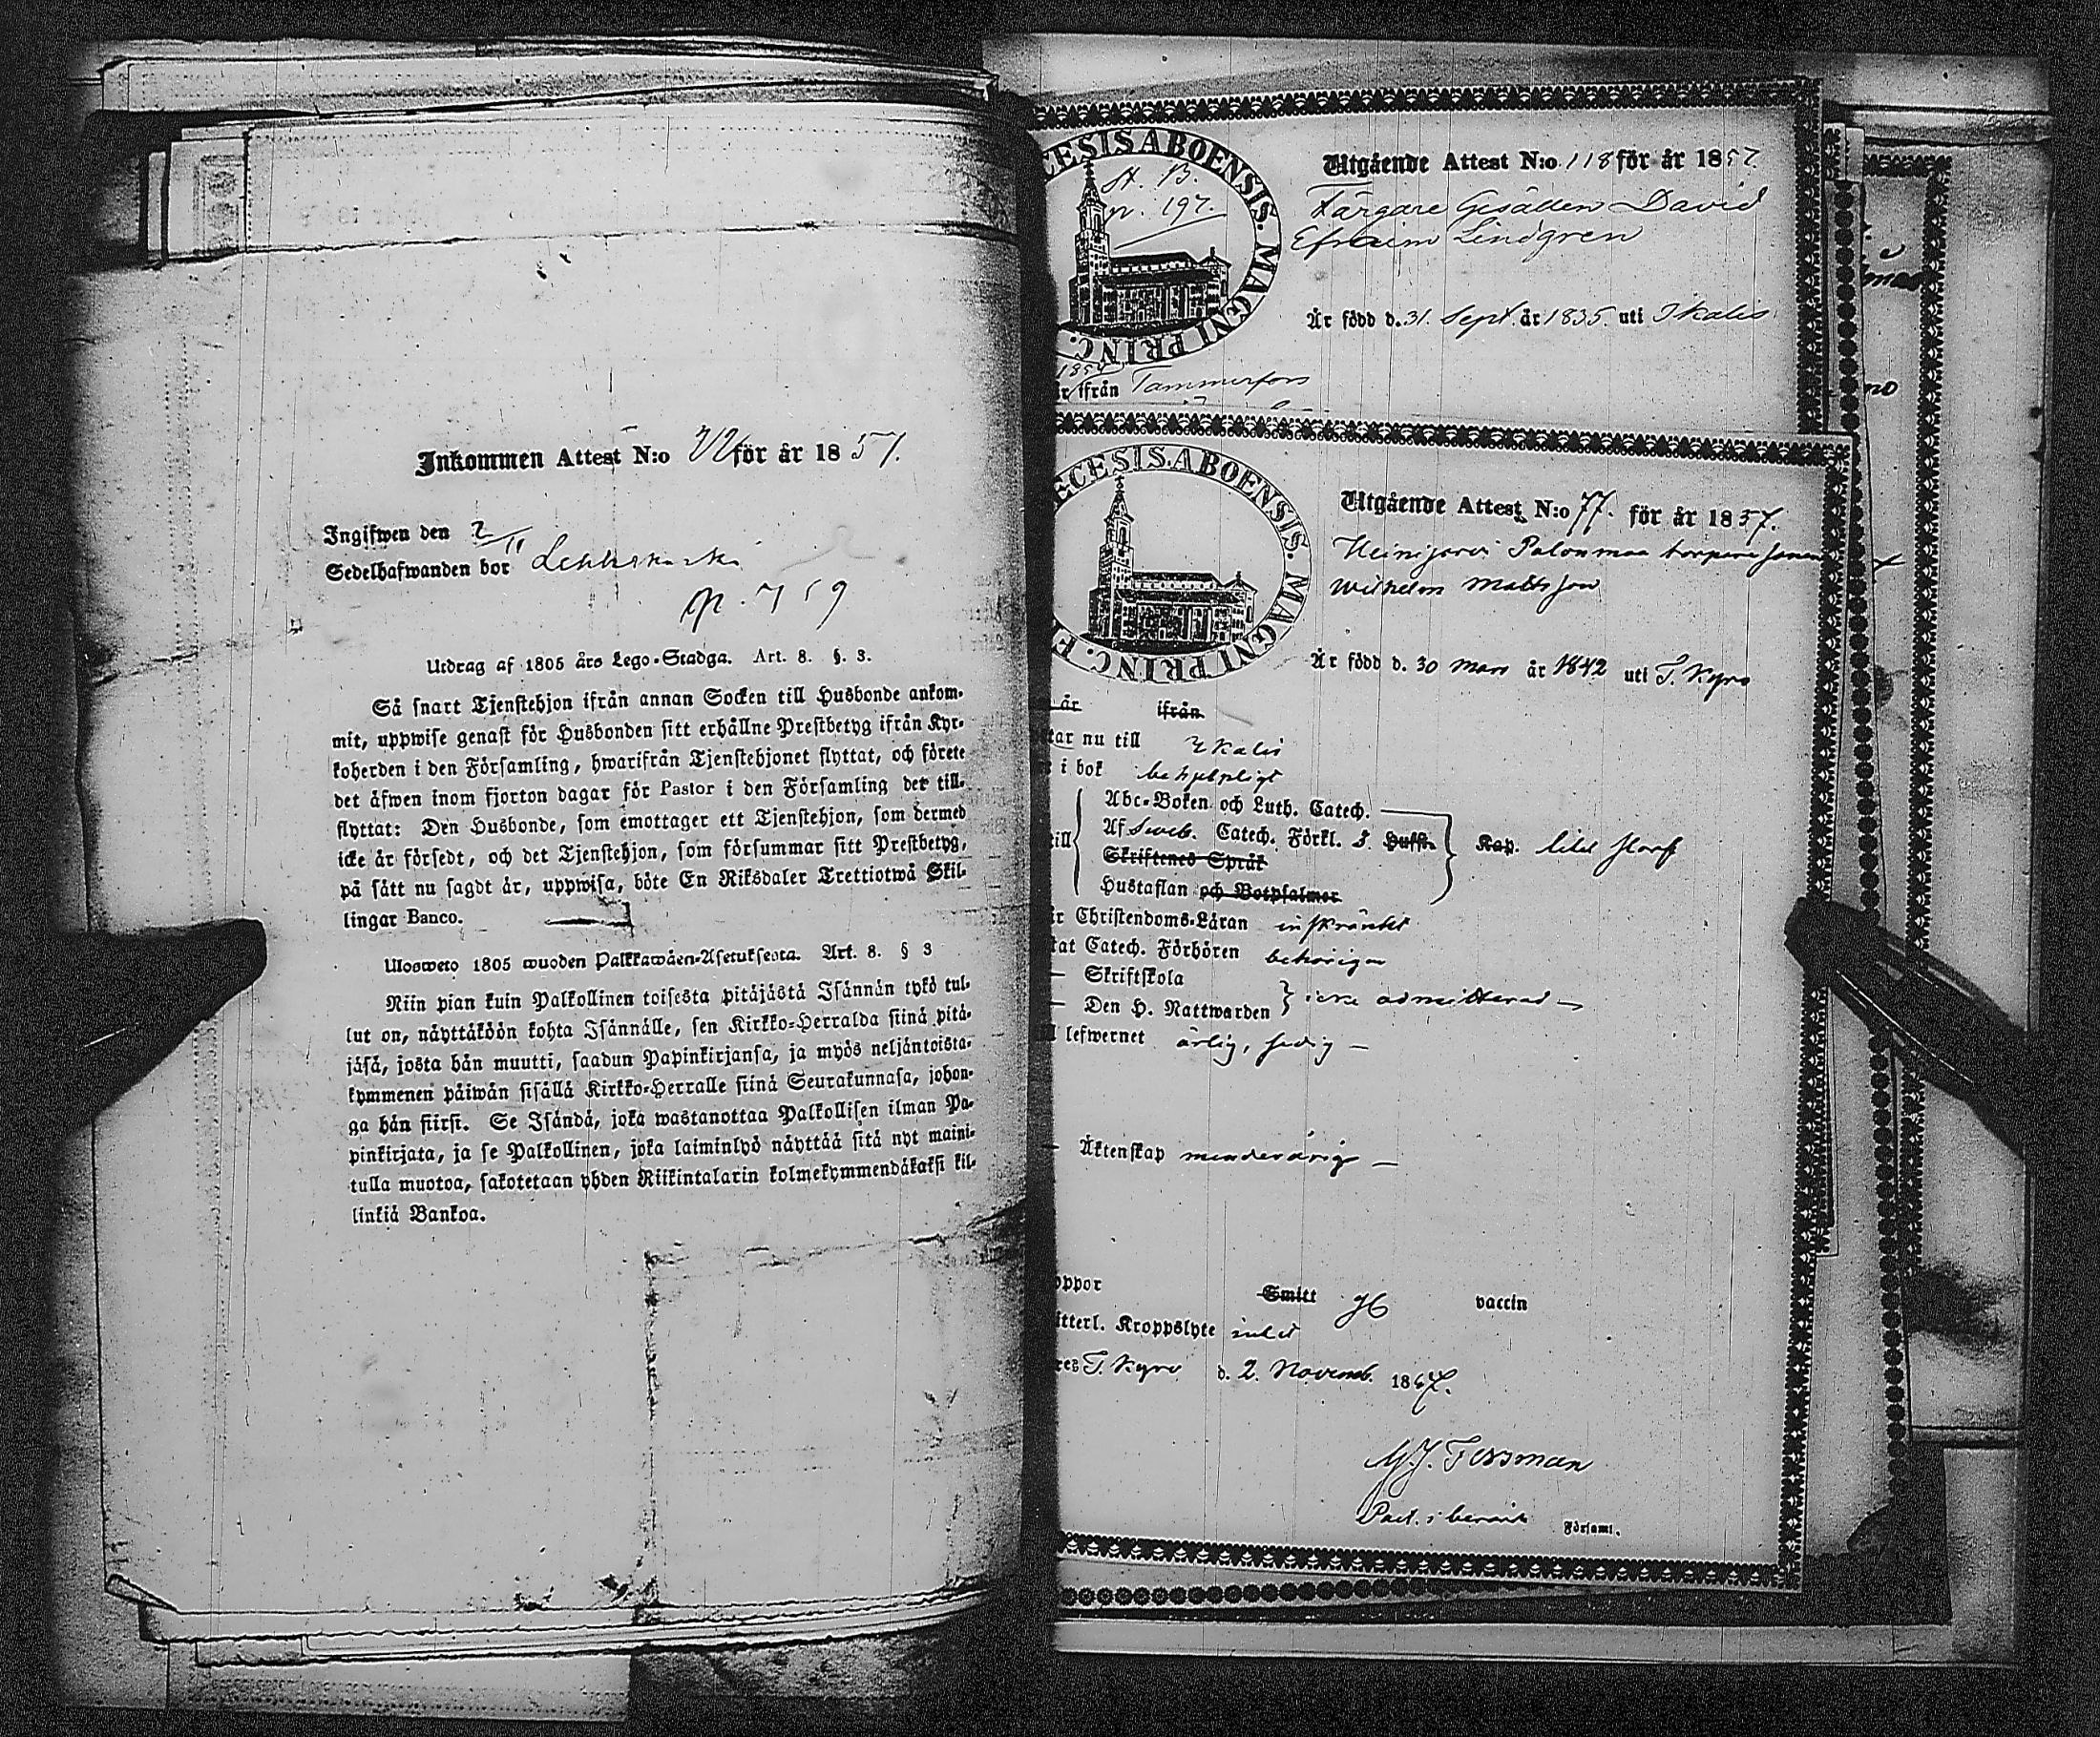 Inkommen Attest N:o 72 för år 1857.
Ingifwen den 2/11
Sedelhafwanden bor
p. 759
Utdrag af 1805 års Lego-Stadga. Art. 8. §. 3.
Så snart Tjenstehjon ifrån annan Socken till Husbonde ankom-
mit, uppwise genast för Husbonden sitt erhållne Prestbetyg ifrån Kyr-
koherden i den Församling, hwarifrån Tjenstehjonet flyttat, och förete
det äfwen inom fjorton dagar för Pastor i den Församling der till-
flyttat: Den Husbonde, som emottager ett Tjenstehjon, som dermed
icke är försedt, och det Tjenstehjon, som försummar sitt Prestbetyg,
på sätt nu sagdt är, uppwisa, böte En Riksdaler Trettiotwå Skil-
lingar Banco.
Ulosweto 1805 wuoden Palkkawäen-Asetuksesta. Art. 8. § 3
Niin pian kuin Palkollinen toisesta pitäjästä Isännän tykö tul-
lut on, näyttäköön kohta Isännälle, sen Kirkko-Herralda siinä pitä-
jäsä, josta hän muutti, saadun Papinkirjansa, ja myös neljäntoista-
kymmenen päiwän sisällä Kirkko-Herralle siinä Seurakunnasa, johon-
ga hän siirsi. Se Isändä, joka wastanottaa Palkollisen ilman Pa-
pinkirjata, ja se Palkollinen, joka laiminlyö näyttää sitä nyt maini-
tulla muotoa, sakotetaan yhden Riikintalarin kolmekymmendäkaksi kil-
linkiä Bankoa.
ECESIS ABOENSIS. MAGNI PRINC.
St. B.
p. 197.
Utgående Attest N:o 118 för år 1857.
Färgare Gesällen David
Efraim Lindgren
Är född d. 31. Sept. år 1835. uti Ikalis
1854
år ifrån Tammerfors
ECESIS. ABOENSIS. MAGNI PRINC. F
Utgående Attest N:o 77. för år 1857.
Heinijärvi Palonmaa torpare sonen
Wilhelm Mattsson
Är född d. 30 Mars år 1842 uti T. Kyro
år ifrån
tar nu till Ikalis
i bok behjelpligt
till
Abc-Boken och Luth. Catech.
Af Sweb. Catech. Förkl. 3. Hufst. Kap. litet stort
Skriftenes Språk
Hustaflan och Botpsalmer
är Christendoms-Läran inskränkt
tat Catech. Förhören behörigen
— Skriftskola
— Den H. Nattwarden icke admitterad —
lefwernet ärlig, sedig —
— Äktenskap minderårig —
oppor Smitt vaccin
itterl. Kroppslyte intet
res T. Kyro d. 2. Novemb. 1857.
M.J. Forsman
Past. i berörde Församl.